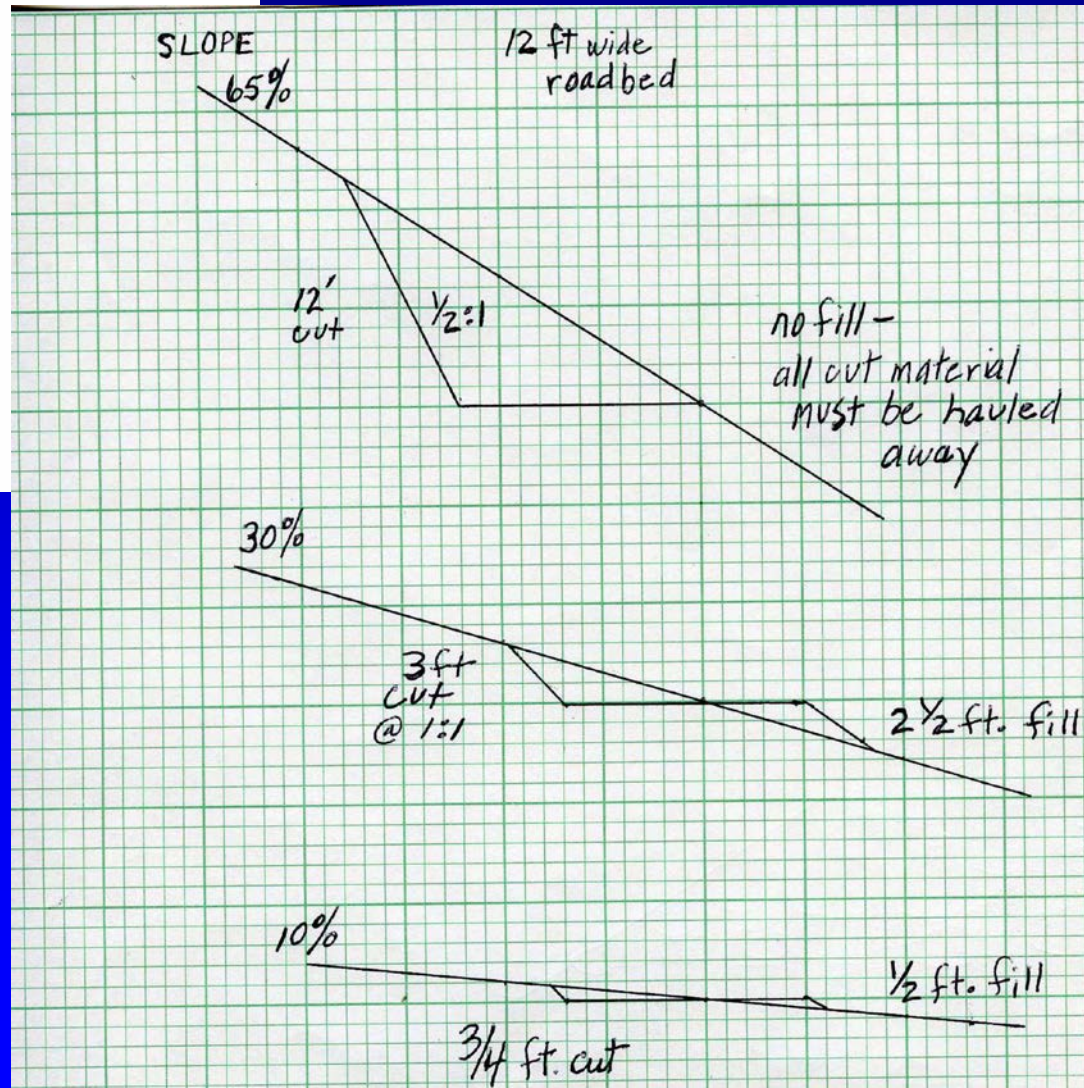 SLOPE
12 ft wide
roadbed
65%
12'
cut
1/2:1
no fill -
all cut material
must be hauled
away
30%
3 ft
cut
@ 1:1
2 1/2 ft. fill
10%
1/2 ft. fill
3/4 ft. cut